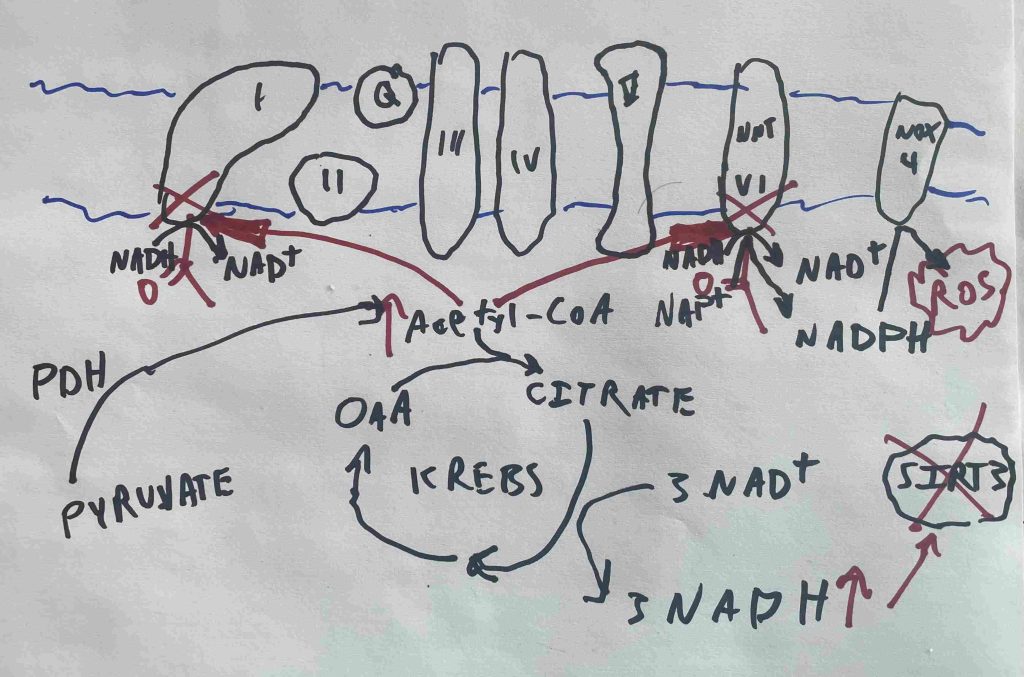 I
Q
III
IV
V
NNT
VI
NOX
4
II
NADH
NAD+
O
NADH
O
NAD+
NAP+
NADPH
ROS
Acetyl-CoA
PDH
OAA
CITRATE
PYRUVATE
KREBS
3 NAD+
SIRT3
3 NADH